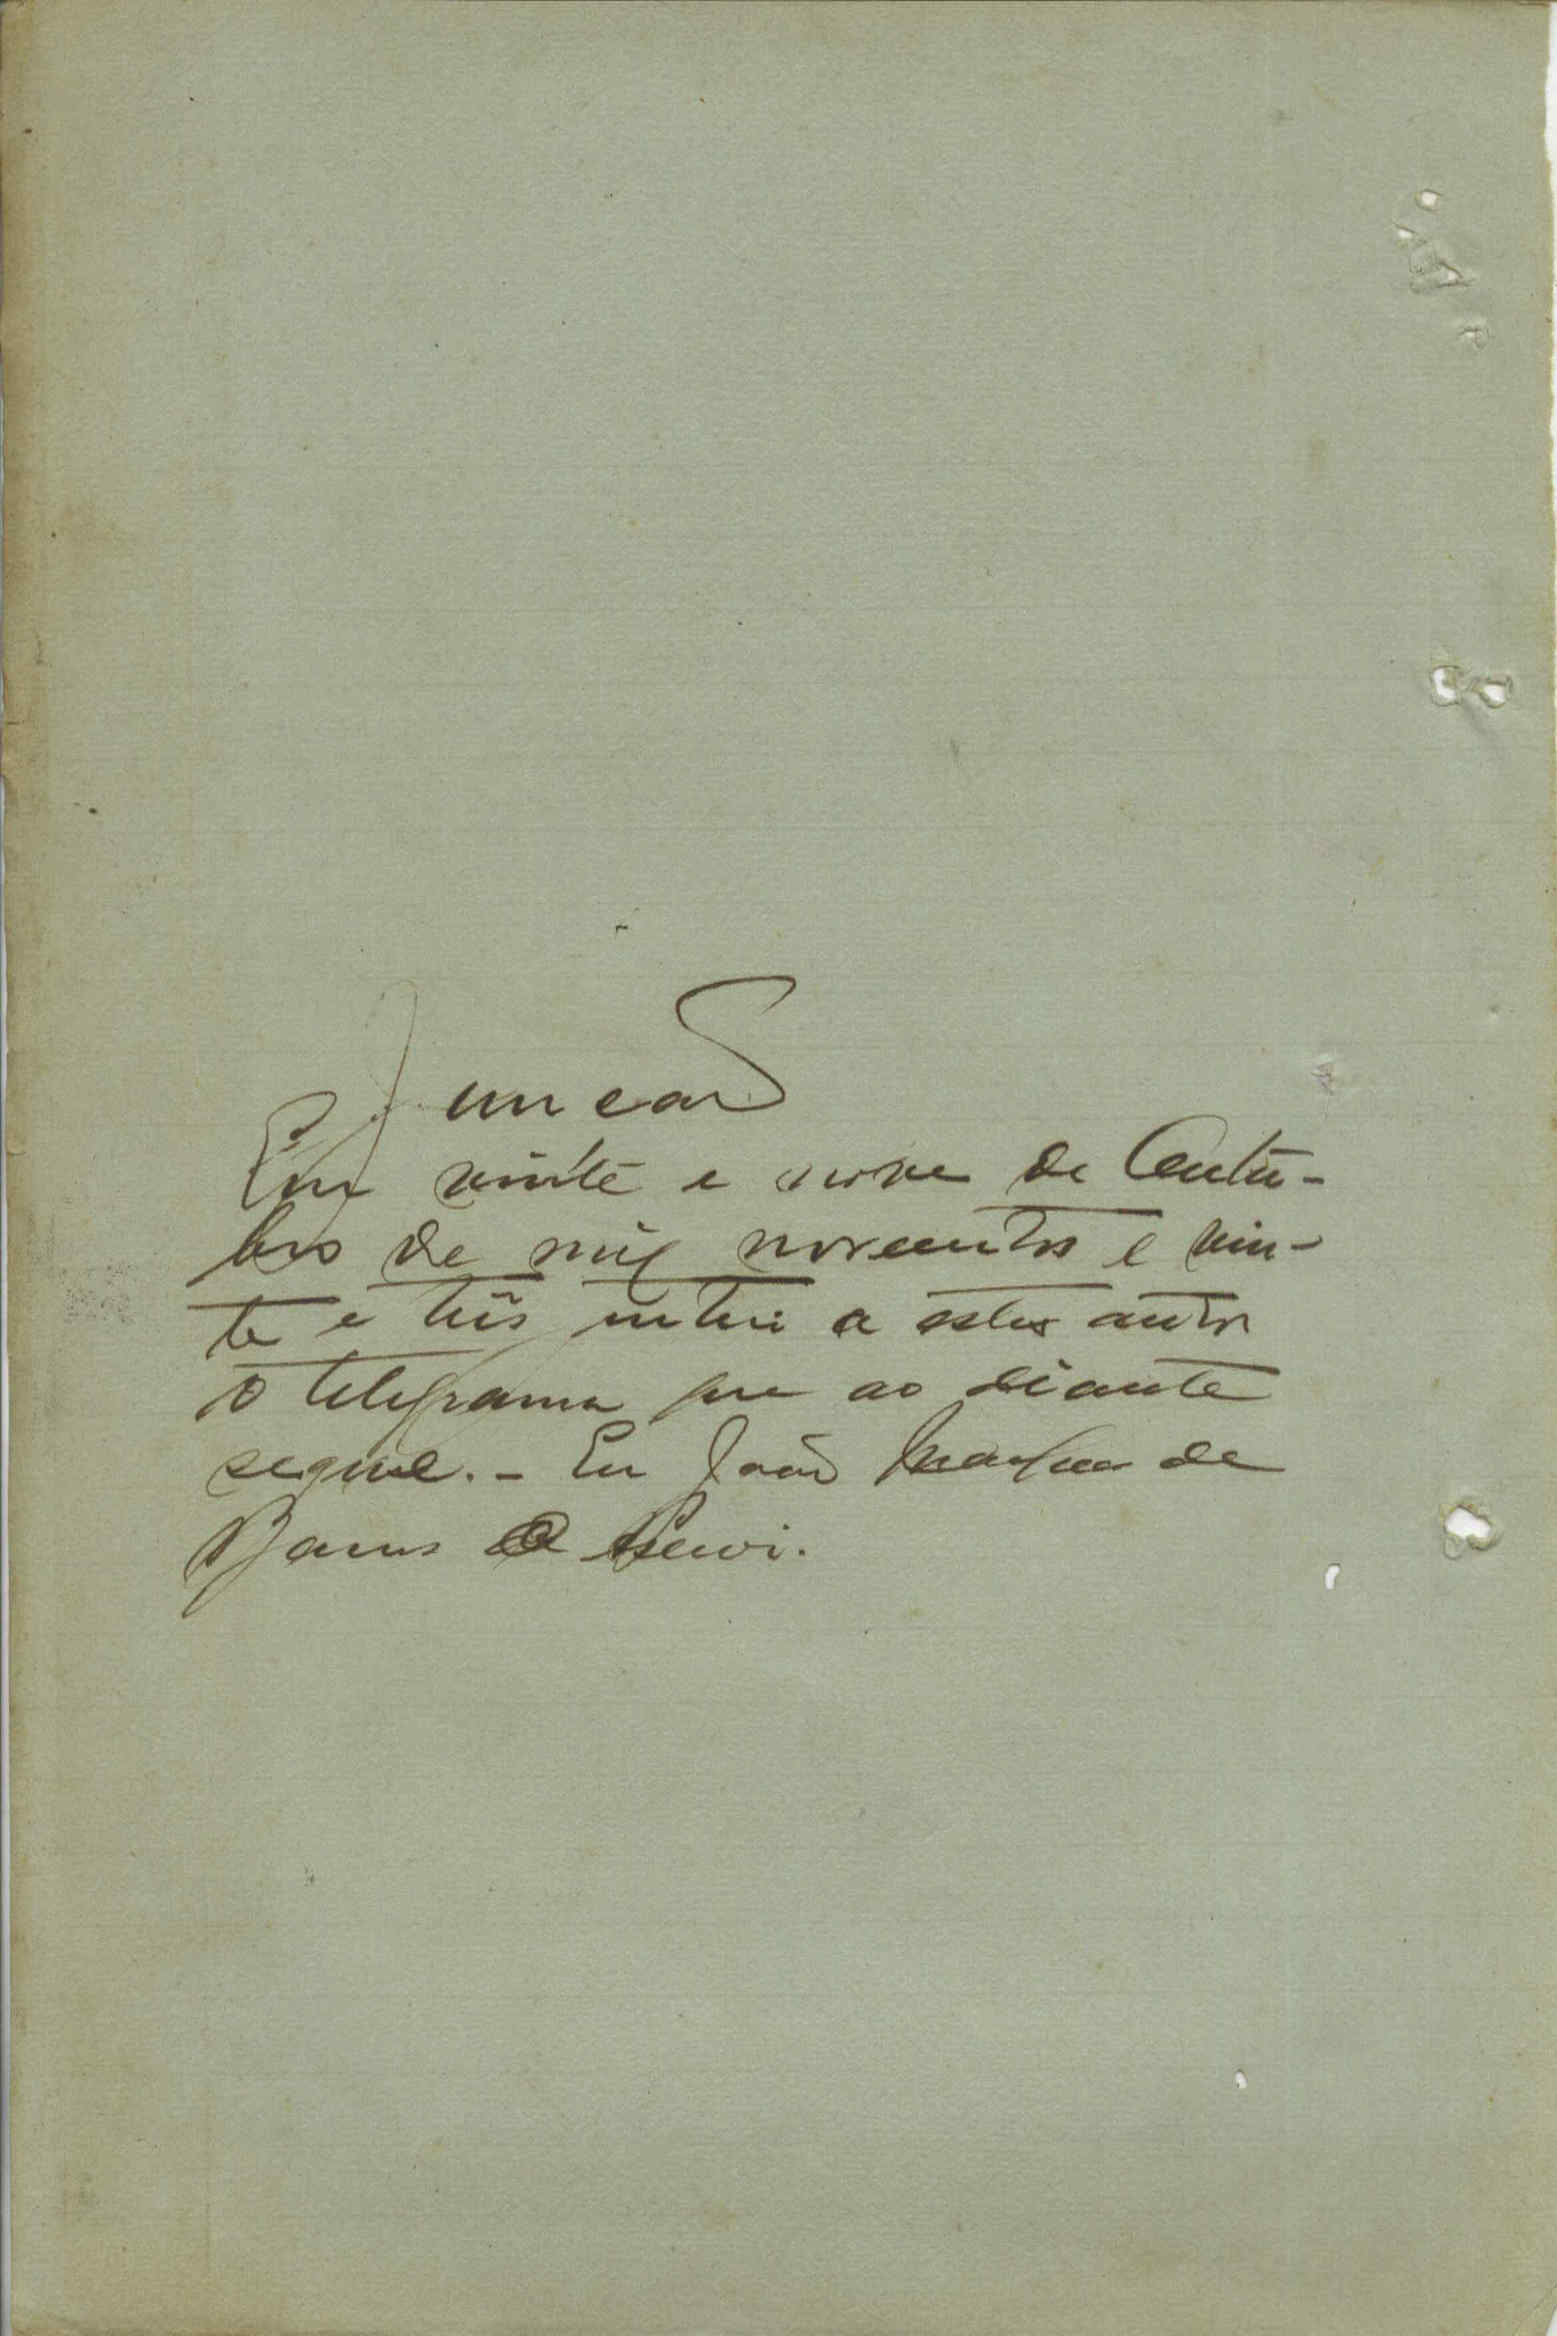 Juncão
Em vinte e nove de Outu-
bro de mil novecentos e vin-
te e três juntei a estes autos
o telegrama que ao diante
segue. - Eu João de
Barros o escrevi.